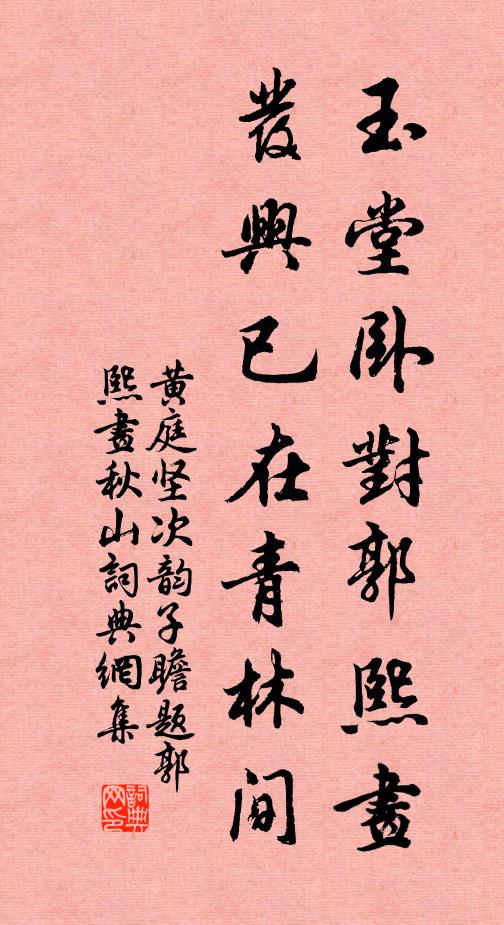 玉堂卧對郭熙畫
發興已在青林間
黄庭坚次韵子瞻题郭
熙畫秋山詞典網集
詞典
网印